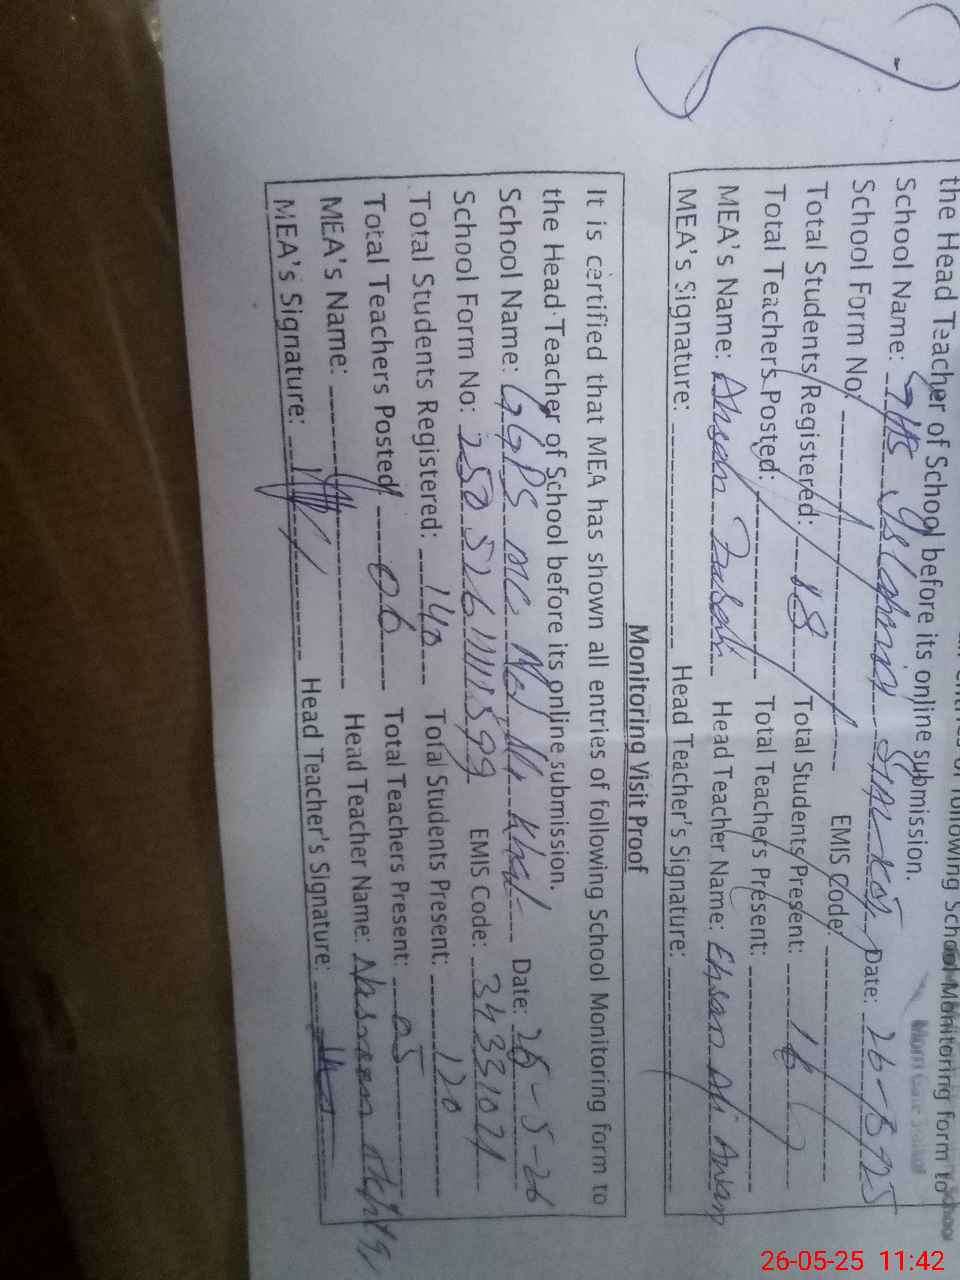 the Head Teacher of School before its online submission.
School Name: GHS Islamia Date: 26-5-25
School Form No: EMIS Code:
Total Students Registered: 18 Total Students Present: 16
Total Teachers Posted: Total Teachers Present:
MEA's Name: Ahsan Head Teacher Name: Ehsan Ali Awan
MEA's Signature: Head Teacher's Signature:
Monitoring Visit Proof
It is certified that MEA has shown all entries of following School Monitoring form to
the Head Teacher of School before its online submission.
School Name: GGPS MC Date: 26-5-26
School Form No: EMIS Code: 34331021
Total Students Registered: 140 Total Students Present: 120
Total Teachers Posted: 06 Total Teachers Present: 05
MEA's Name: Head Teacher Name: Nasreen Akhtar
MEA's Signature: Head Teacher's Signature:
26-05-25 11:42